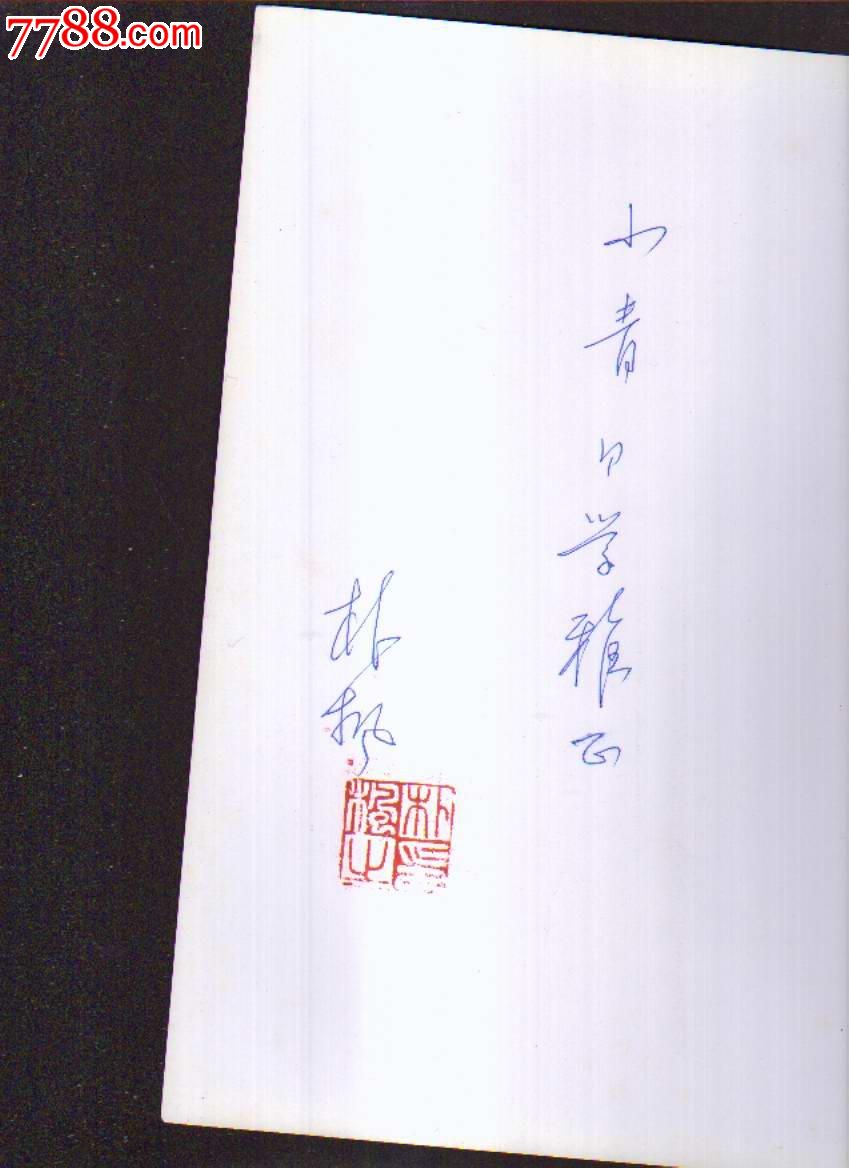 7788.com
小青同学雅正
朴枫